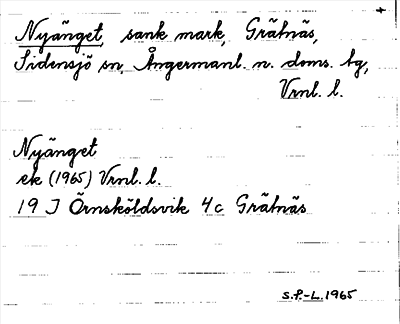 Nyänget, sank mark, Grätnäs,
Sidensjö sn, Ångermanl. n. doms. tg,
Vrnl. l.
Nyänget
ek (1965) Vrnl. l.
19 J Örnsköldsvik 4c Grätnäs
S.P.-L. 1965